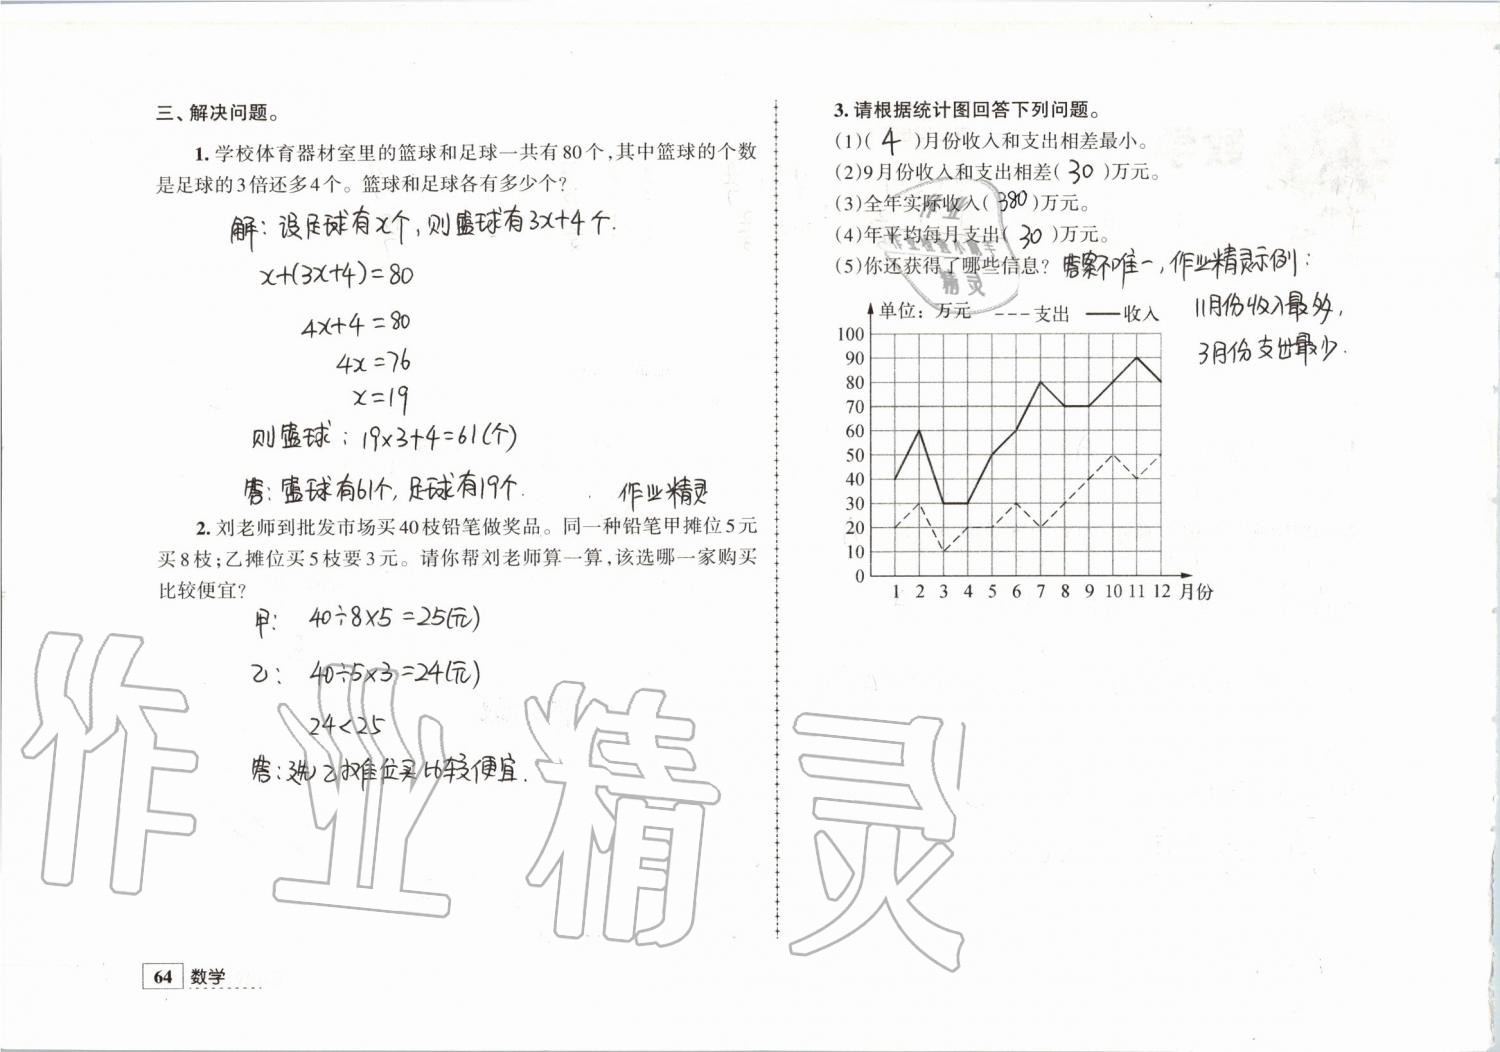 三、解决问题。
1.学校体育器材室里的篮球和足球一共有80个,其中篮球的个数
是足球的3倍还多4个。篮球和足球各有多少个?
解:设足球有x个,则篮球有3x+4个.
x+(3x+4)=80
4x+4=80
4x=76
x=19
则篮球:19×3+4=61(个)
答:篮球有61个,足球有19个.
作业精灵
2.刘老师到批发市场买40枝铅笔做奖品。同一种铅笔甲摊位5元
买8枝;乙摊位买5枝要3元。请你帮刘老师算一算,该选哪一家购买
比较便宜?
甲: 40÷8×5=25(元)
乙: 40÷5×3=24(元)
24<25
答:选乙摊位买比较便宜.
64 数学
3.请根据统计图回答下列问题。
(1)( 4 )月份收入和支出相差最小。
(2)9月份收入和支出相差( 30 )万元。
(3)全年实际收入( 380 )万元。
(4)年平均每月支出( 30 )万元。
(5)你还获得了哪些信息? 答案不唯一,作业精灵示例:
11月份收入最多,
3月份支出最少.
单位:万元 支出 收入
100
90
80
70
60
50
40
30
20
10
0
1 2 3 4 5 6 7 8 9 10 11 12 月份
作业精灵
作业
精灵